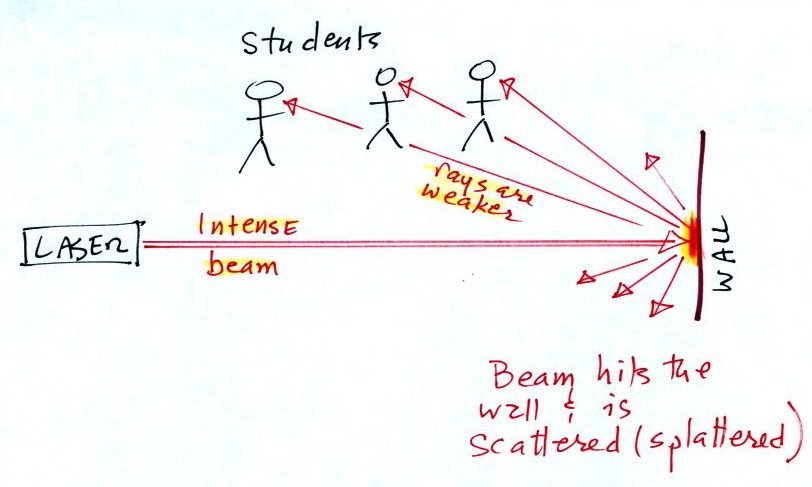 Students
rays are
weaker
Intense
beam
LASER
WALL
Beam hits the
wall & is
scattered (splattered)